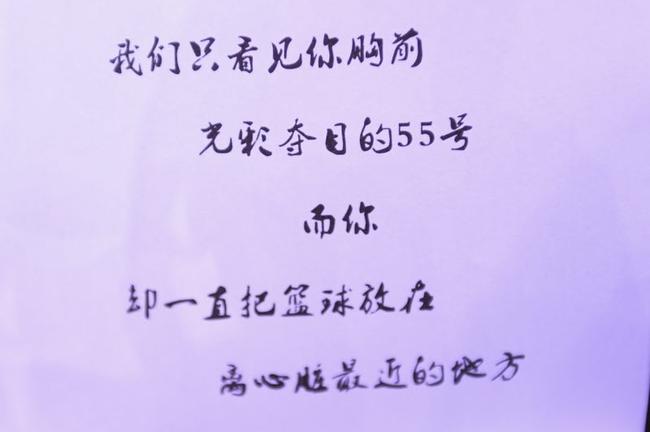 我们只看见你胸前
光彩夺目的55号
而你
却一直把篮球放在
离心脏最近的地方